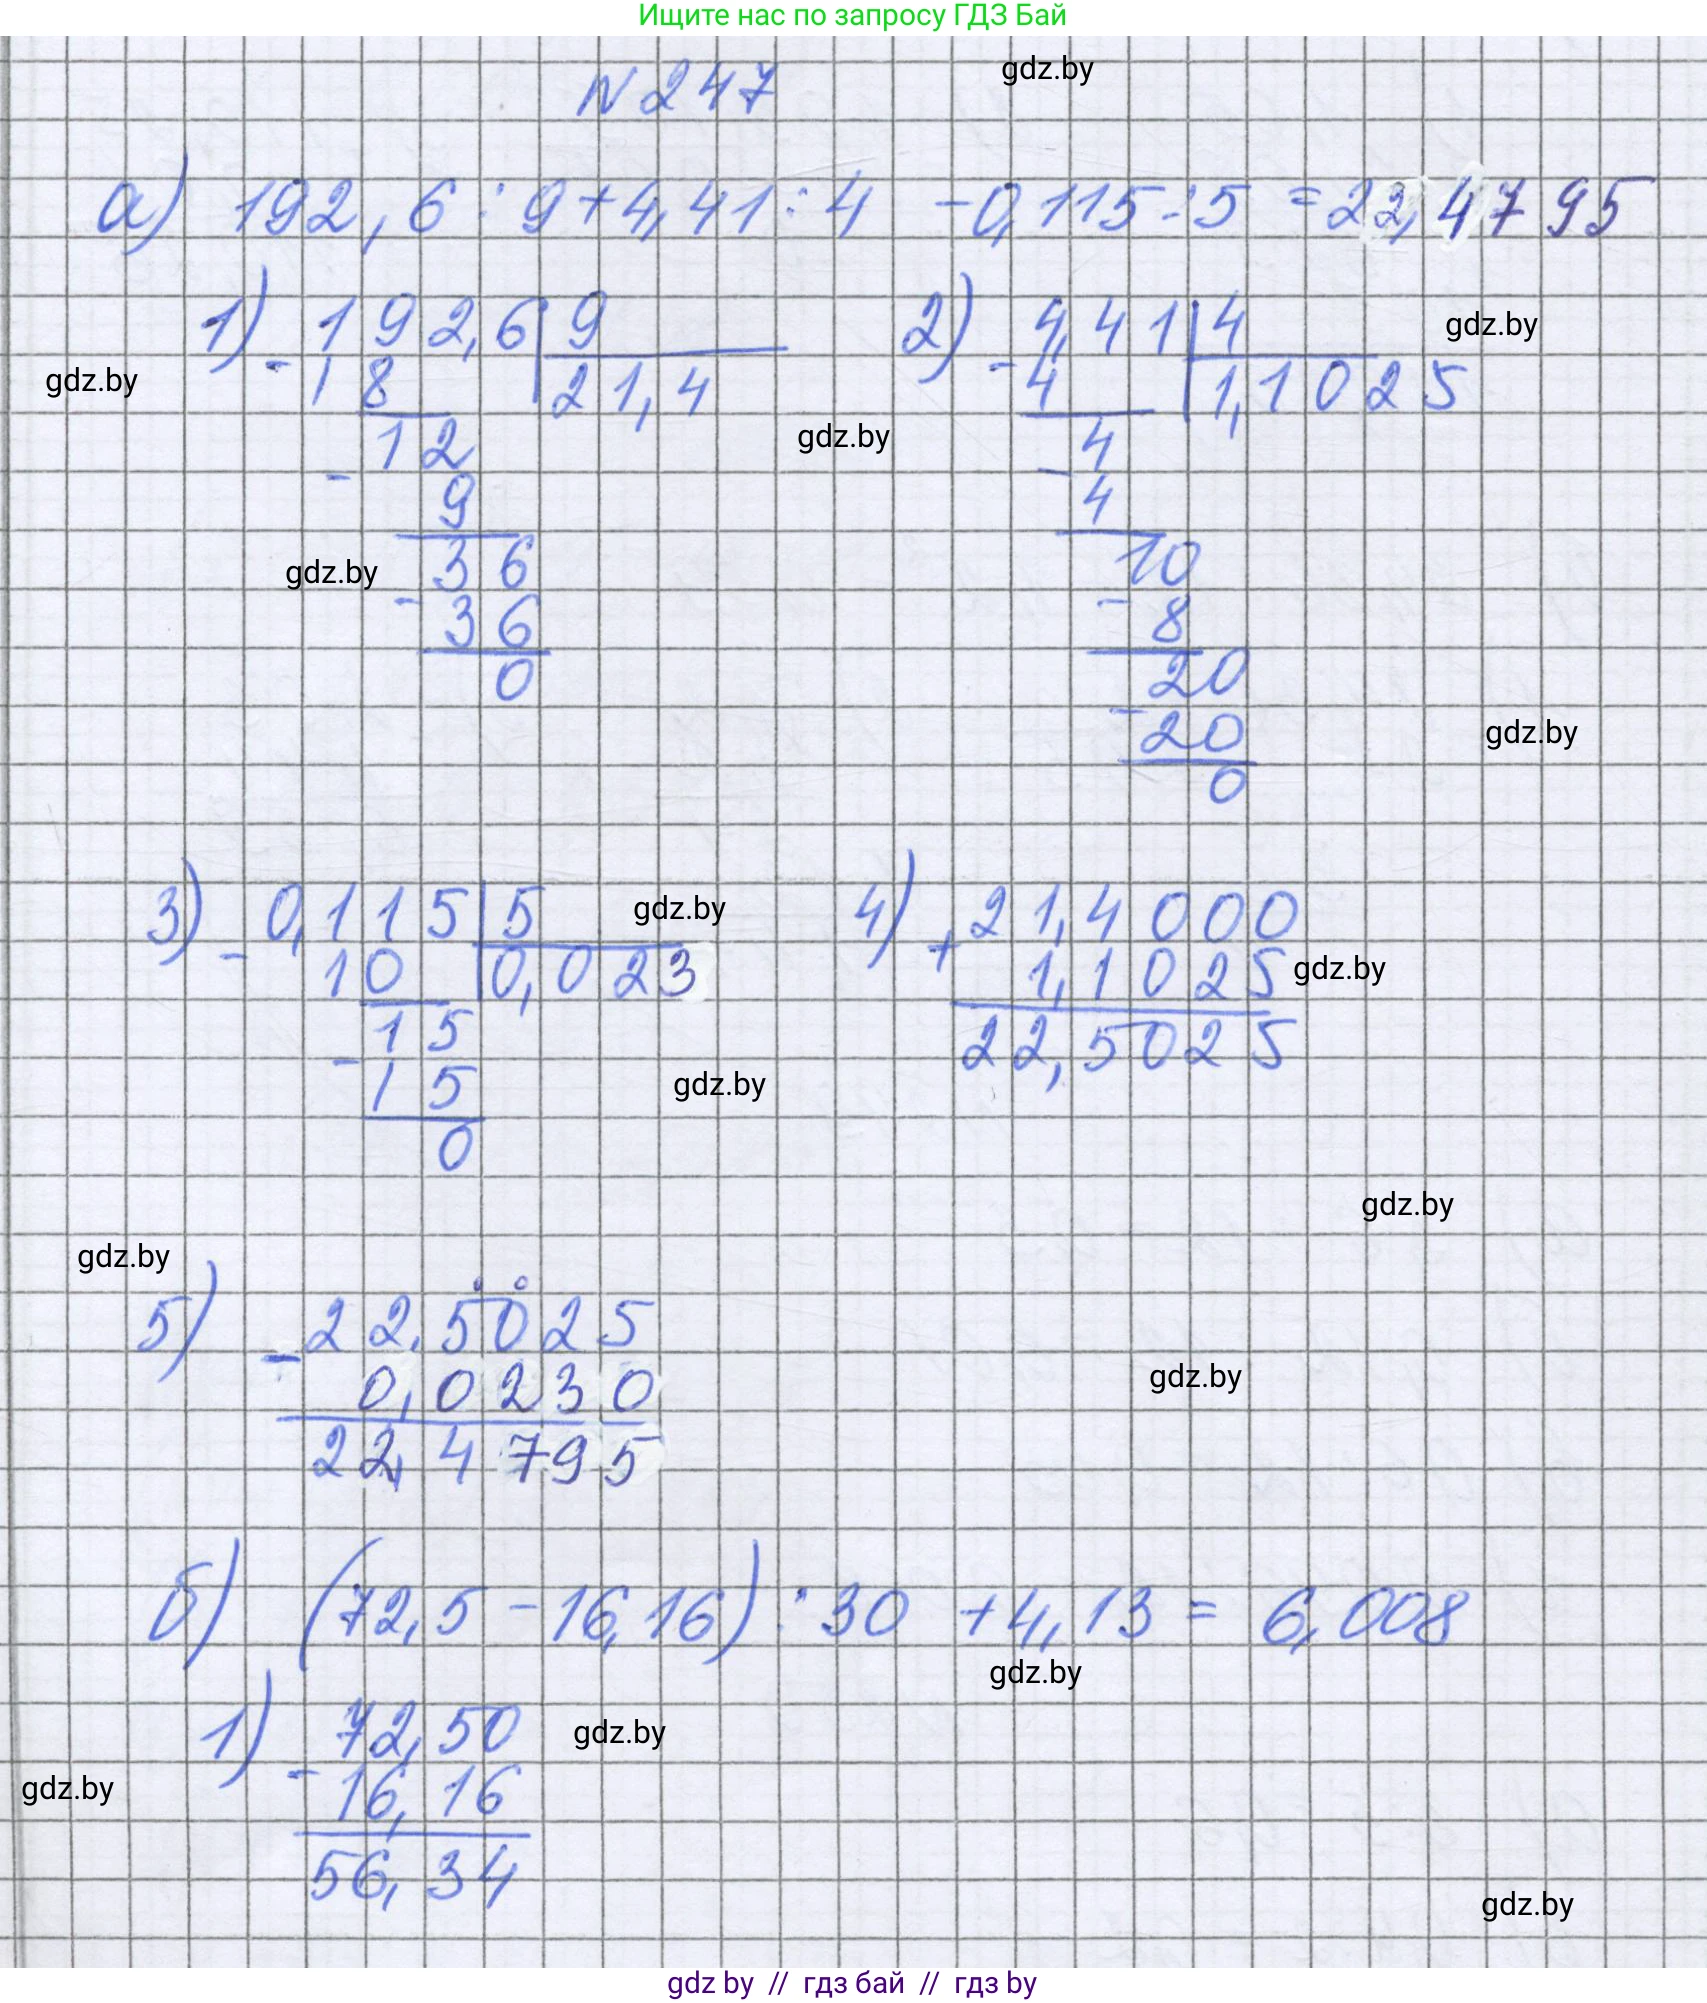 Ищите нас по запросу ГДЗ Бай
N 247
gdz.by
а) 192,6 : 9 + 4,41 : 4 - 0,115 : 5 = 22,4795
1) 192,6 | 9
- 18 | 21,4
12
- 9
36
- 36
0
2) 4,41 | 4
- 4 | 1,1025
4
- 4
10
- 8
20
- 20
0
gdz.by
gdz.by
gdz.by
gdz.by
gdz.by
3) 0,115 | 5
- 10 | 0,023
15
- 15
0
gdz.by
4) 21,4000
+ 1,1025
22,5025
gdz.by
gdz.by
gdz.by
gdz.by
5) 22,5025
- 0,0230
22,4795
gdz.by
б) (72,5 - 16,16) : 30 + 4,13 = 6,008
gdz.by
1) 72,50
- 16,16
56,34
gdz.by
gdz.by
gdz.by
gdz by // гдз бай // гдз by